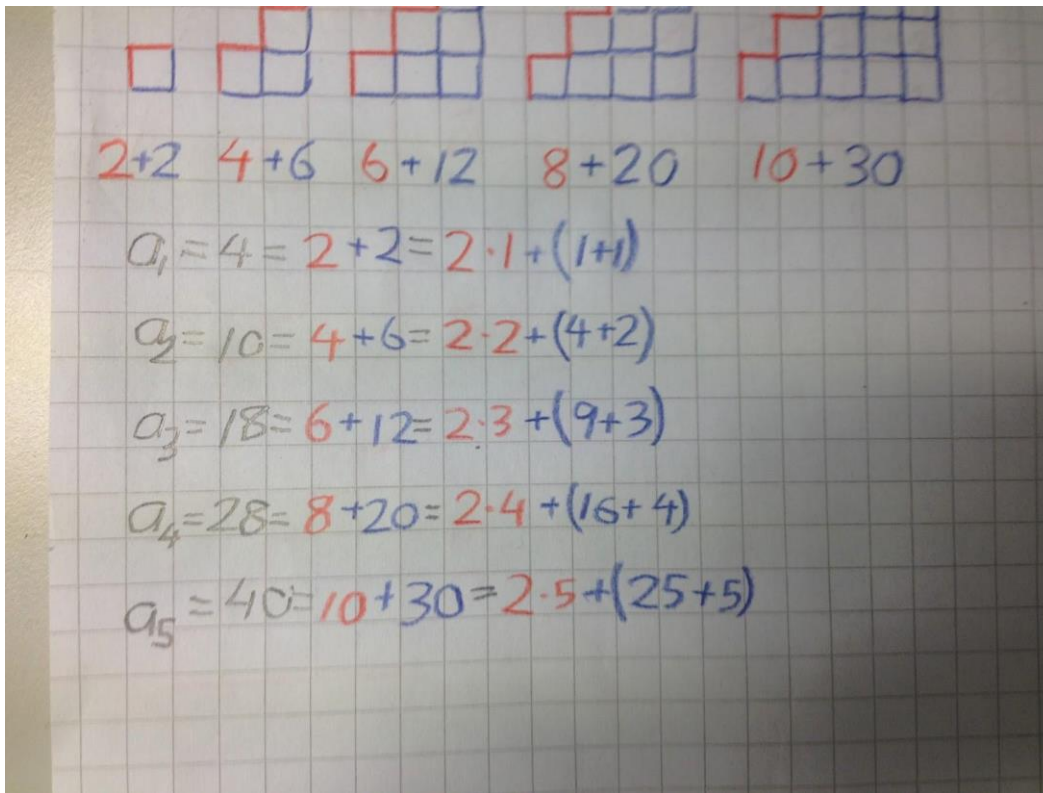 2+2 4+6 6+12 8+20 10+30
a₁=4=2+2=2·1+(1+1)
a₂=10=4+6=2·2+(4+2)
a₃=18=6+12=2·3+(9+3)
a₄=28=8+20=2·4+(16+4)
a₅=40=10+30=2·5+(25+5)